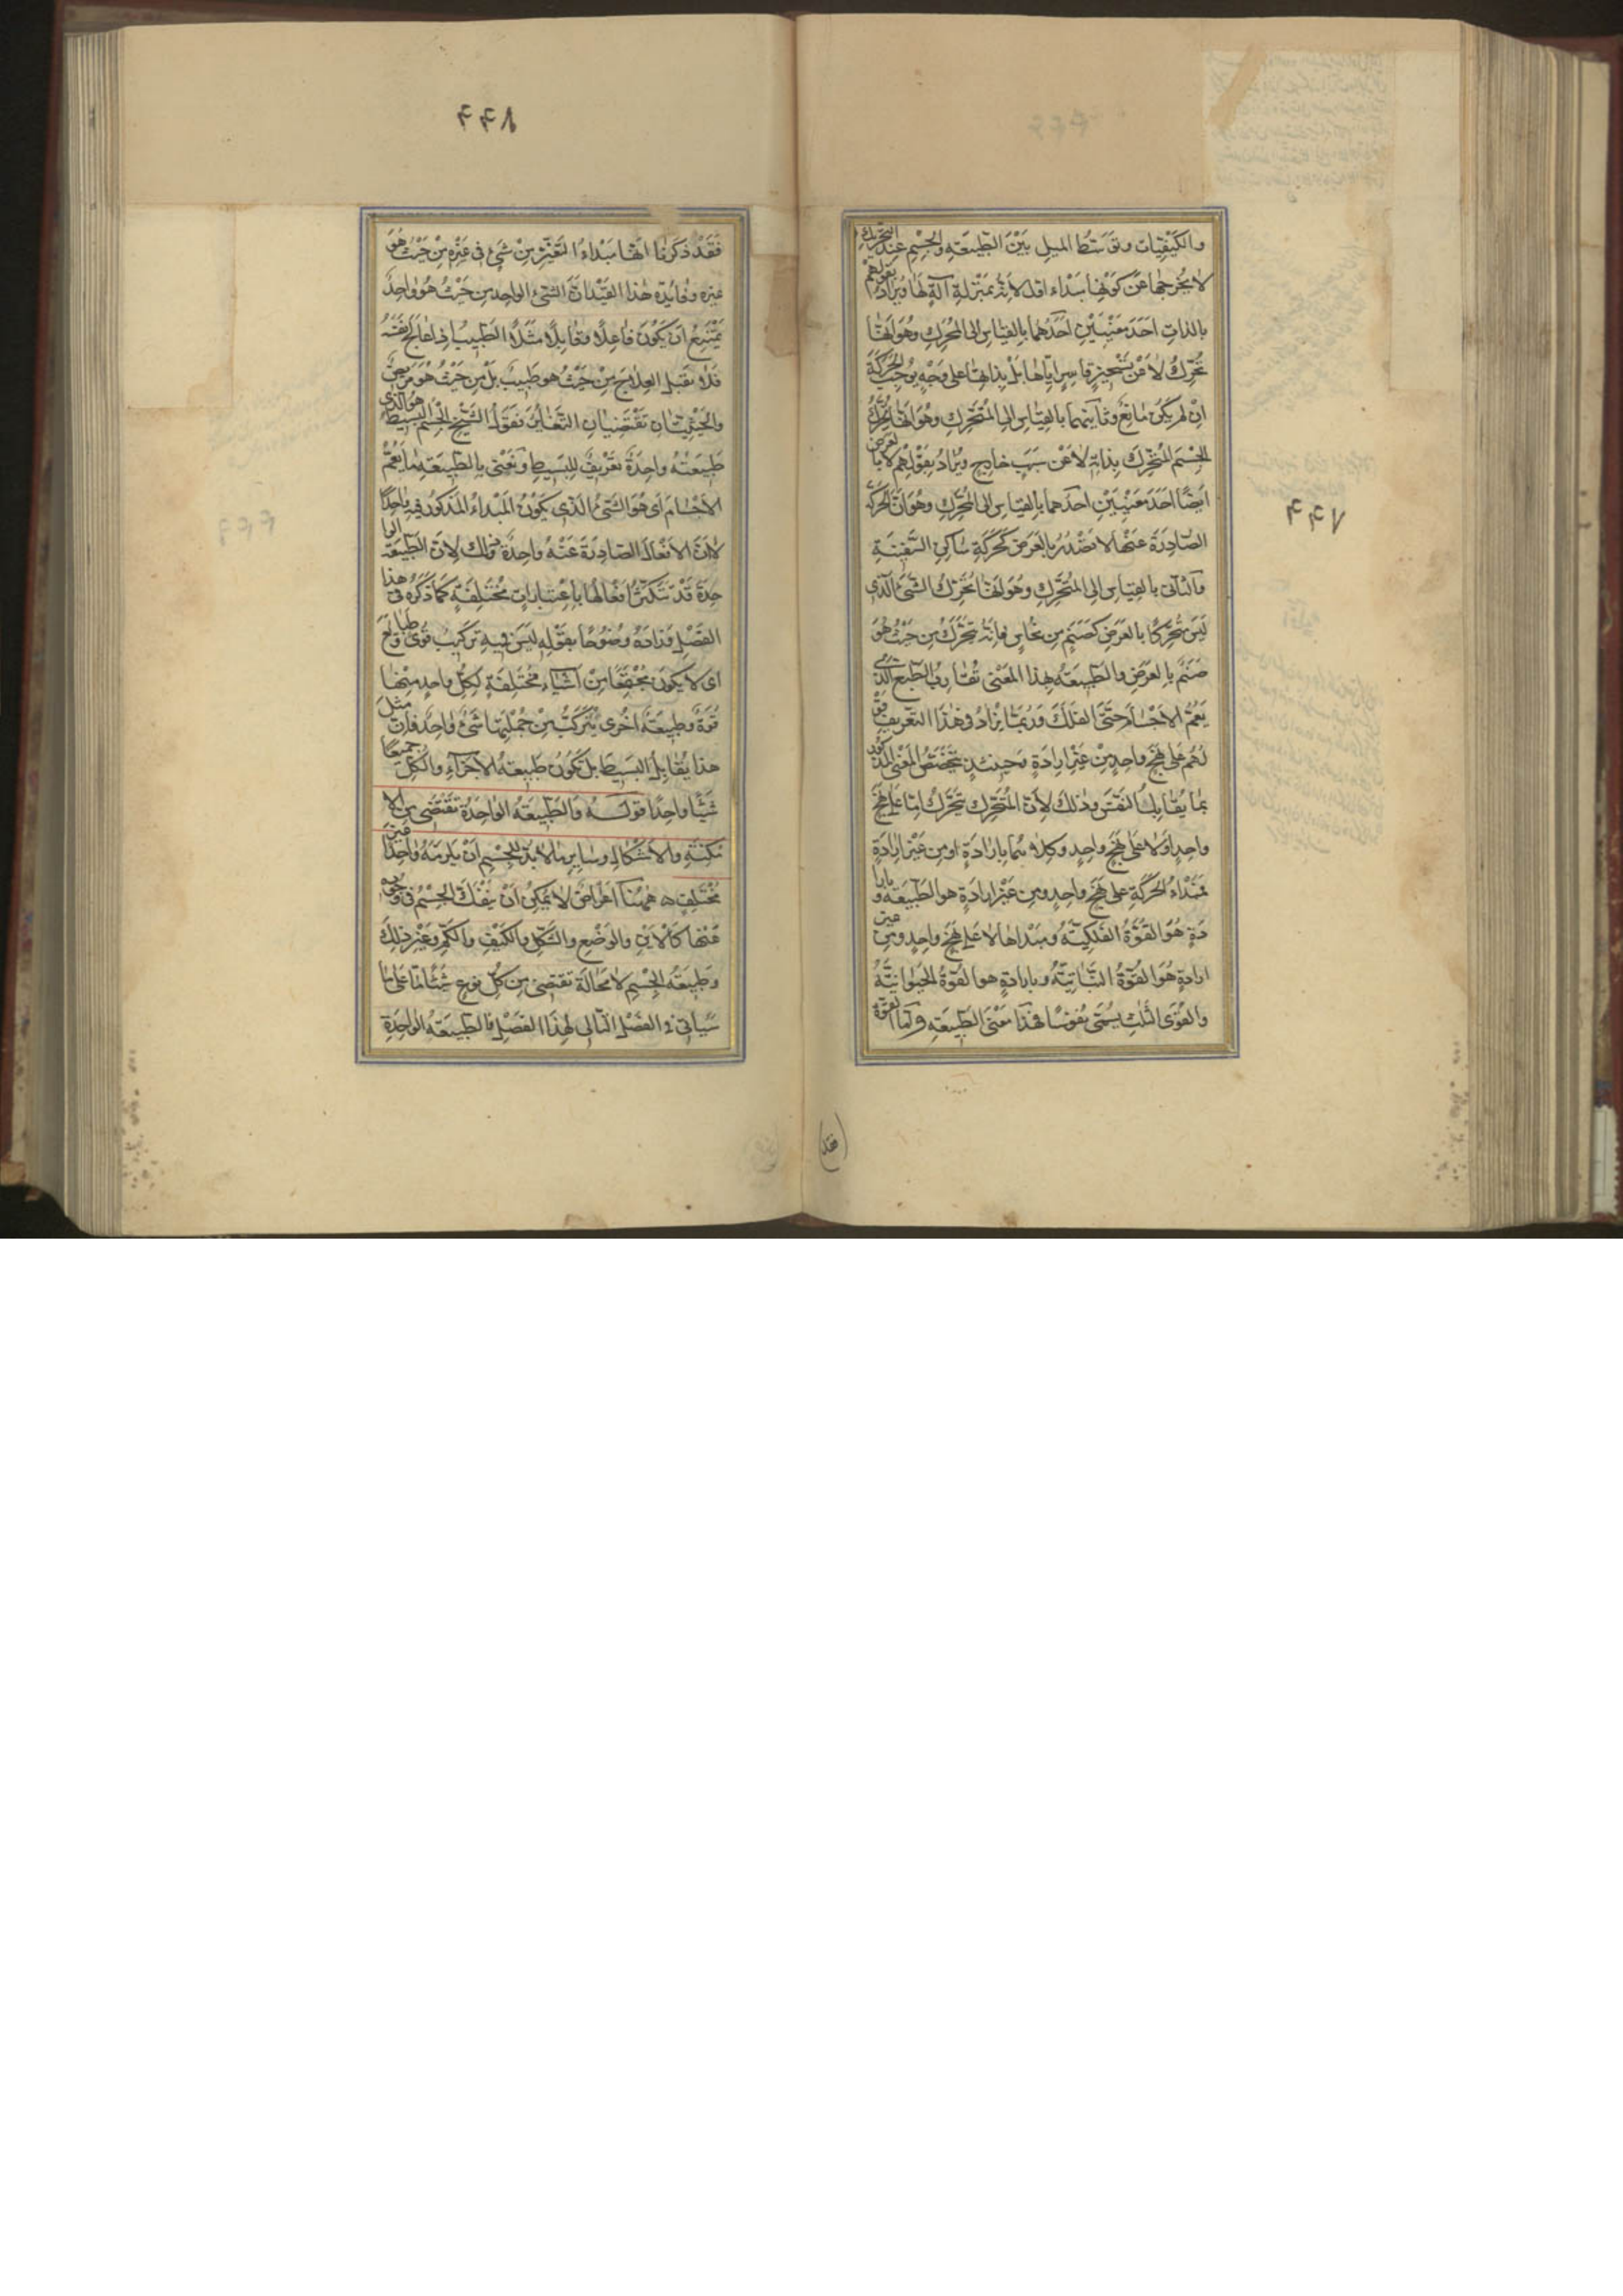 والكيفيات وتوسّط الميل بين الطبيعة والجسم عند التحريك
لا يخرجها عن كونها مبداء اوّل لأنه بمنزلة آلة لها ويراد بقولهم
بالذات احد معنيين احدهما بالقياس الى المحرك وهو انها
تحرك لا عن تسخير قاسر اياها بل بذاتها على وجه يوجب الحركة
ان لم يكن مانع وثانيهما بالقياس الى المتحرك وهو انها تحرك
الجسم المتحرك بذاته لا عن سبب خارج ويراد بقولهم لا بالعرض
ايضا احد معنيين احدهما بالقياس الى المحرك وهو ان الحركة
الصادرة عنها لا تصدر بالعرض كحركة ساكن السفينة
والثاني بالقياس الى المتحرك وهو انها تحرك الشئ الذى
ليس متحركا بالعرض كصنم من نحاس فانه يتحرك من حيث هو
صنم بالعرض والطبيعة بهذا المعنى تقارب الطبع الذى
يعم الاجسام حتى الفلك وربما يزاد فى هذا التعريف قو
لهم على نهج واحد من غير ارادة وحينئذ يتخصص المعنى المذكور
بما يقابل النفس وذلك لأن المتحرك يتحرك اما على نهج
واحد اولا على نهج واحد وكلاهما بارادة او من غير ارادة
فمبداء الحركة على نهج واحد ومن غير ارادة هو الطبيعة وبارا
دة هو القوة الفلكية ومبداها لا على نهج واحد ومن غير
ارادة هو القوة النباتية وبارادة هو القوة الحيوانية
والقوى الثلث يسمى نفوسا فهذا معنى الطبيعة واما القوة
٤٤٨
فقد ذكرنا انها مبداء التغير من شئ فى غيره من حيث هو
غيره وفايدة هذا القيد ان الشئ الواحد من حيث هو واحد
يمتنع ان يكون فاعلا وقابلا مثلا الطبيب اذا عالج نفسه
فلا يقبل العلاج من حيث هو طبيب بل من حيث هو مريض
والحيثيتان تقتضيان التغاير فقول الشيخ الجسم البسيط هو الذى
طبيعته واحدة تعريف للبسيط ونعنى بالطبيعة ما يعم
الاجسام اى هو الشئ الذى يكون المبداء المذكور فيه واحدا
لأن الافعال الصادرة عنه واحدة وذلك لأن الطبيعة الوا
حدة قد تتكثر افعالها باعتبارات مختلفة كما ذكره فى هذا
الفصل وزاده وضوحا بقوله ليس فيه تركيب قوى وطبايع
اى لا يكون مجتمعا من اشياء مختلفة لكل واحد منها
قوة وطبيعة اخرى يتركب من جملتها شئ واحد فان مثل
هذا يقابل البسيط بل تكون طبيعة الاجزاء والكل جميعا
شيئا واحدا قوله والطبيعة الواحدة تقتضى من الا
مكنة والاشكال وساير ما لا بد للجسم ان يلزمه واحدا غير
مختلف ه ههنا اعراض لا يمكن ان ينفك الجسم فى وجوده
عنها كالاين والوضع والشكل والكيف والكم وغير ذلك
وطبيعة الجسم لا محالة تقتضى من كل نوع شيئا ما على ما
سيأتى فى الفصل التالى لهذا الفصل فالطبيعة الواحدة
٤٤٧